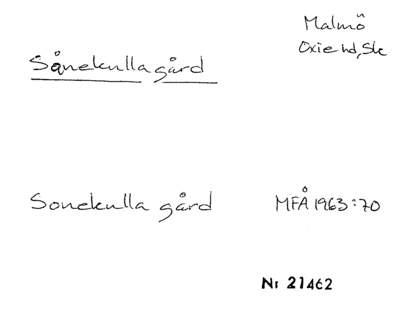 Malmö
Oxie hd, Sk
Sånekulla gård
Sonekulla gård MFÅ 1963:70
Nr 21462